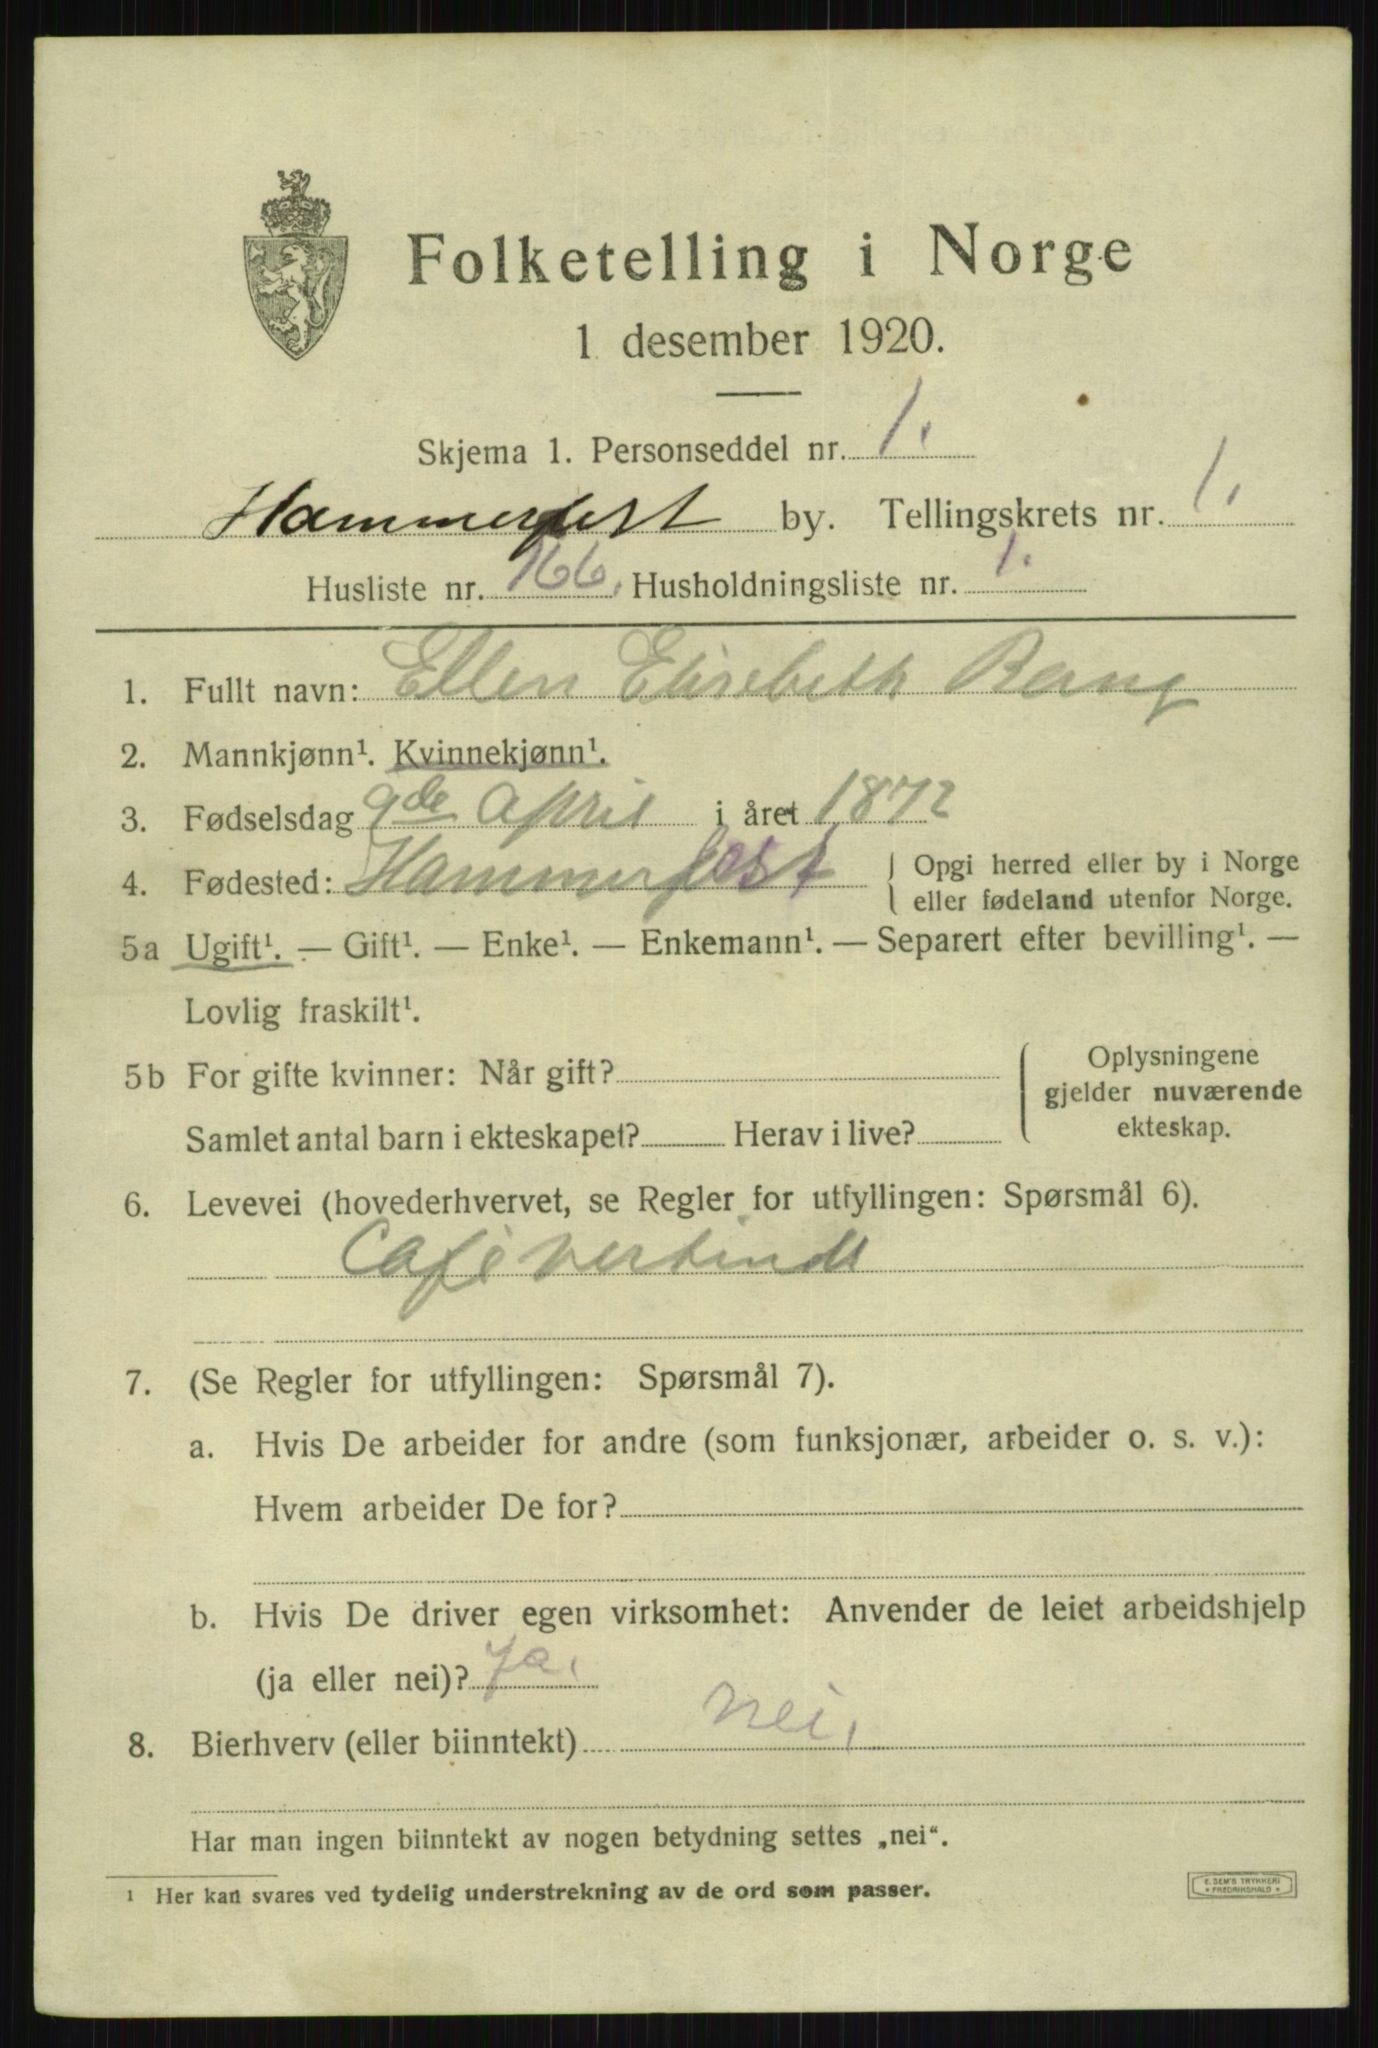 Folketelling i Norge
1 desember 1920.
Skjema 1. Personseddel nr. 1.
Hammerfest by. Tellingskrets nr. 1.
Husliste nr. 166. Husholdningsliste nr. 1.
1. Fullt navn: Ellen Elisebeth Bang
2. Mannkjønn¹. Kvinnekjønn¹.
3. Fødselsdag 9de April i året 1872
4. Fødested: Hammerfest { Opgi herred eller by i Norge
eller fødeland utenfor Norge.
5a Ugift¹. — Gift¹. — Enke¹. — Enkemann¹. — Separert efter bevilling¹. —
Lovlig fraskilt¹.
5b For gifte kvinner: Når gift?
Samlet antal barn i ekteskapet? Herav i live?
{ Oplysningene
gjelder nuværende
ekteskap.
6. Levevei (hovederhvervet, se Regler for utfyllingen: Spørsmål 6).
Cafévertinde
7. (Se Regler for utfyllingen: Spørsmål 7).
a. Hvis De arbeider for andre (som funksjonær, arbeider o. s. v.):
Hvem arbeider De for?
b. Hvis De driver egen virksomhet: Anvender de leiet arbeidshjelp
(ja eller nei)? Ja.
8. Bierhverv (eller biinntekt) nei.
Har man ingen biinntekt av nogen betydning settes „nei“.
¹ Her kan svares ved tydelig understrekning av de ord som passer.
E. SEM'S TRYKKERI
• FREDRIKSHALD •